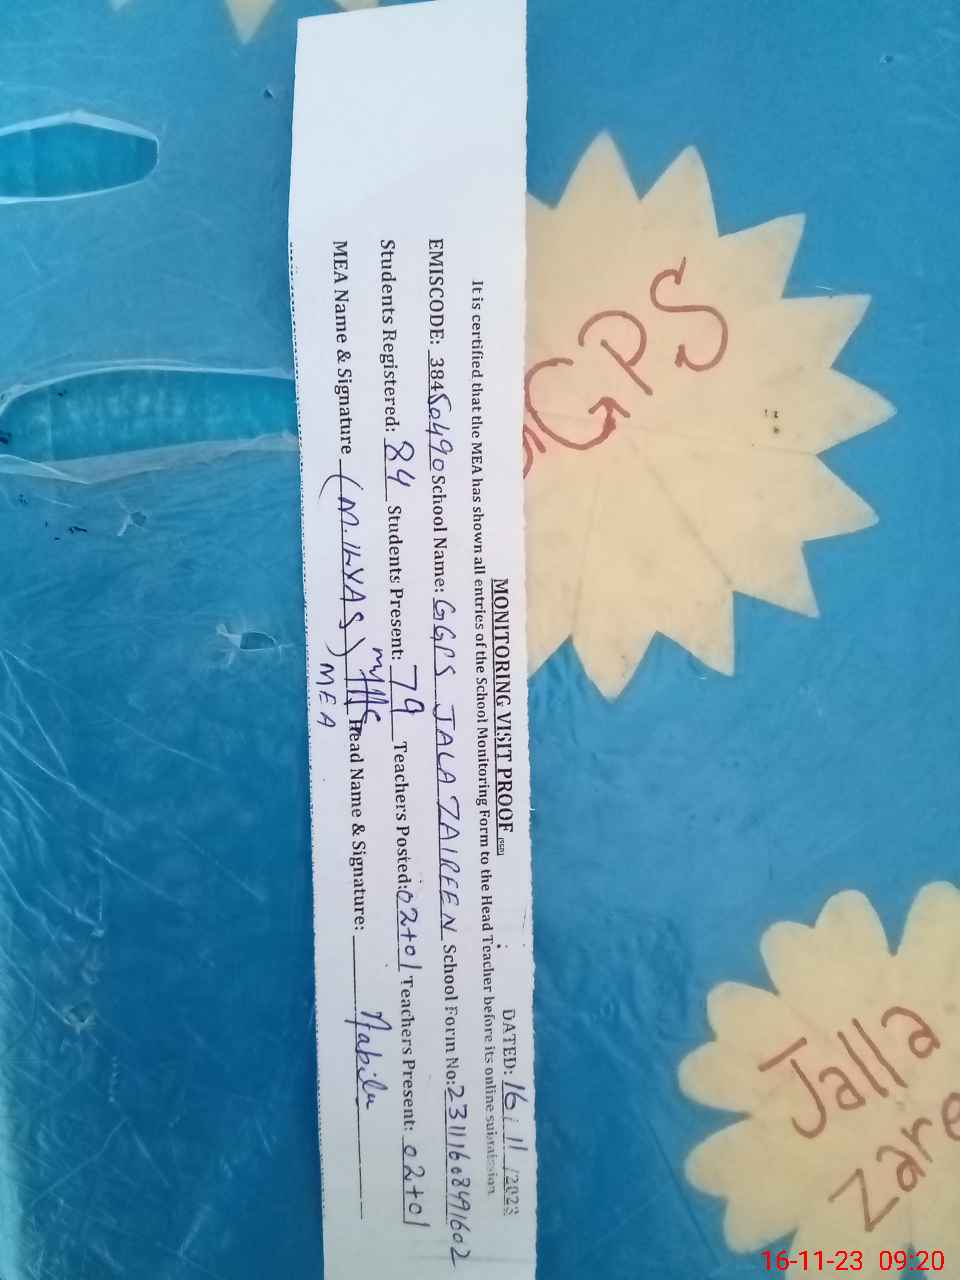 MONITORING VISIT PROOF (SED) DATED: 16/11/2023
It is certified that the MEA has shown all entries of the School Monitoring Form to the Head Teacher before its online submission.
EMISCODE: 38450490 School Name: GGPS JALA ZAIREEN School Form No: 23111608491602
Students Registered: 84 Students Present: 79 Teachers Posted: 02+01 Teachers Present: 02+01
MEA Name & Signature (M. ILYAS) Head Name & Signature: Nabila
MEA
GGPS
Jalla
Zare
16-11-23 09:20